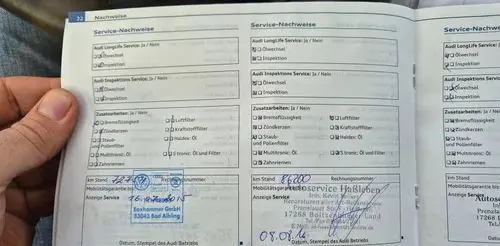 32 Nachweise
Service-Nachweise
Audi LongLife Service: Ja / Nein
Ölwechsel
Inspektion
Audi Inspektions Service: Ja / Nein
Ölwechsel
Inspektion
Zusatzarbeiten: Ja / Nein
Bremsflüssigkeit
Luftfilter
Zündkerzen
Kraftstofffilter
Staub- und Pollenfilter
Haldex: Öl
Multitronic: Öl
S tronic: Öl und Filter
Zahnriemen
km Stand
Rechnungsnummer
Mobilitätsgarantie bis
Anzeige Service
Boxhammer GmbH
83043 Bad Aibling
Datum, Stempel des Audi Betriebs
Service-Nachweise
Audi LongLife Service: Ja / Nein
Ölwechsel
Inspektion
Audi Inspektions Service: Ja / Nein
Ölwechsel
Inspektion
Zusatzarbeiten: Ja / Nein
Bremsflüssigkeit
Luftfilter
Zündkerzen
Kraftstofffilter
Staub- und Pollenfilter
Haldex: Öl
Multitronic: Öl
S tronic: Öl und Filter
Zahnriemen
km Stand
Rechnungsnummer
Mobilitätsgarantie
Anzeige Service
Autoservice Haßleben
17268 Boitzenburger Land
08.08.16
Datum, Stempel des Audi Betriebs
Service-Nach
Audi LongLife Servic
Ölwechsel
Inspektion
Audi Inspektions Ser
Ölwechsel
Inspektion
Zusatzarbeiten: Ja /
Bremsflüssigkeit
Zündkerzen
Staub-
und Pollenfilter
Multitronic: Öl
Zahnriemen
km Stand
Mobilitätsgarantie
Anzeige Service
Datum, Ste